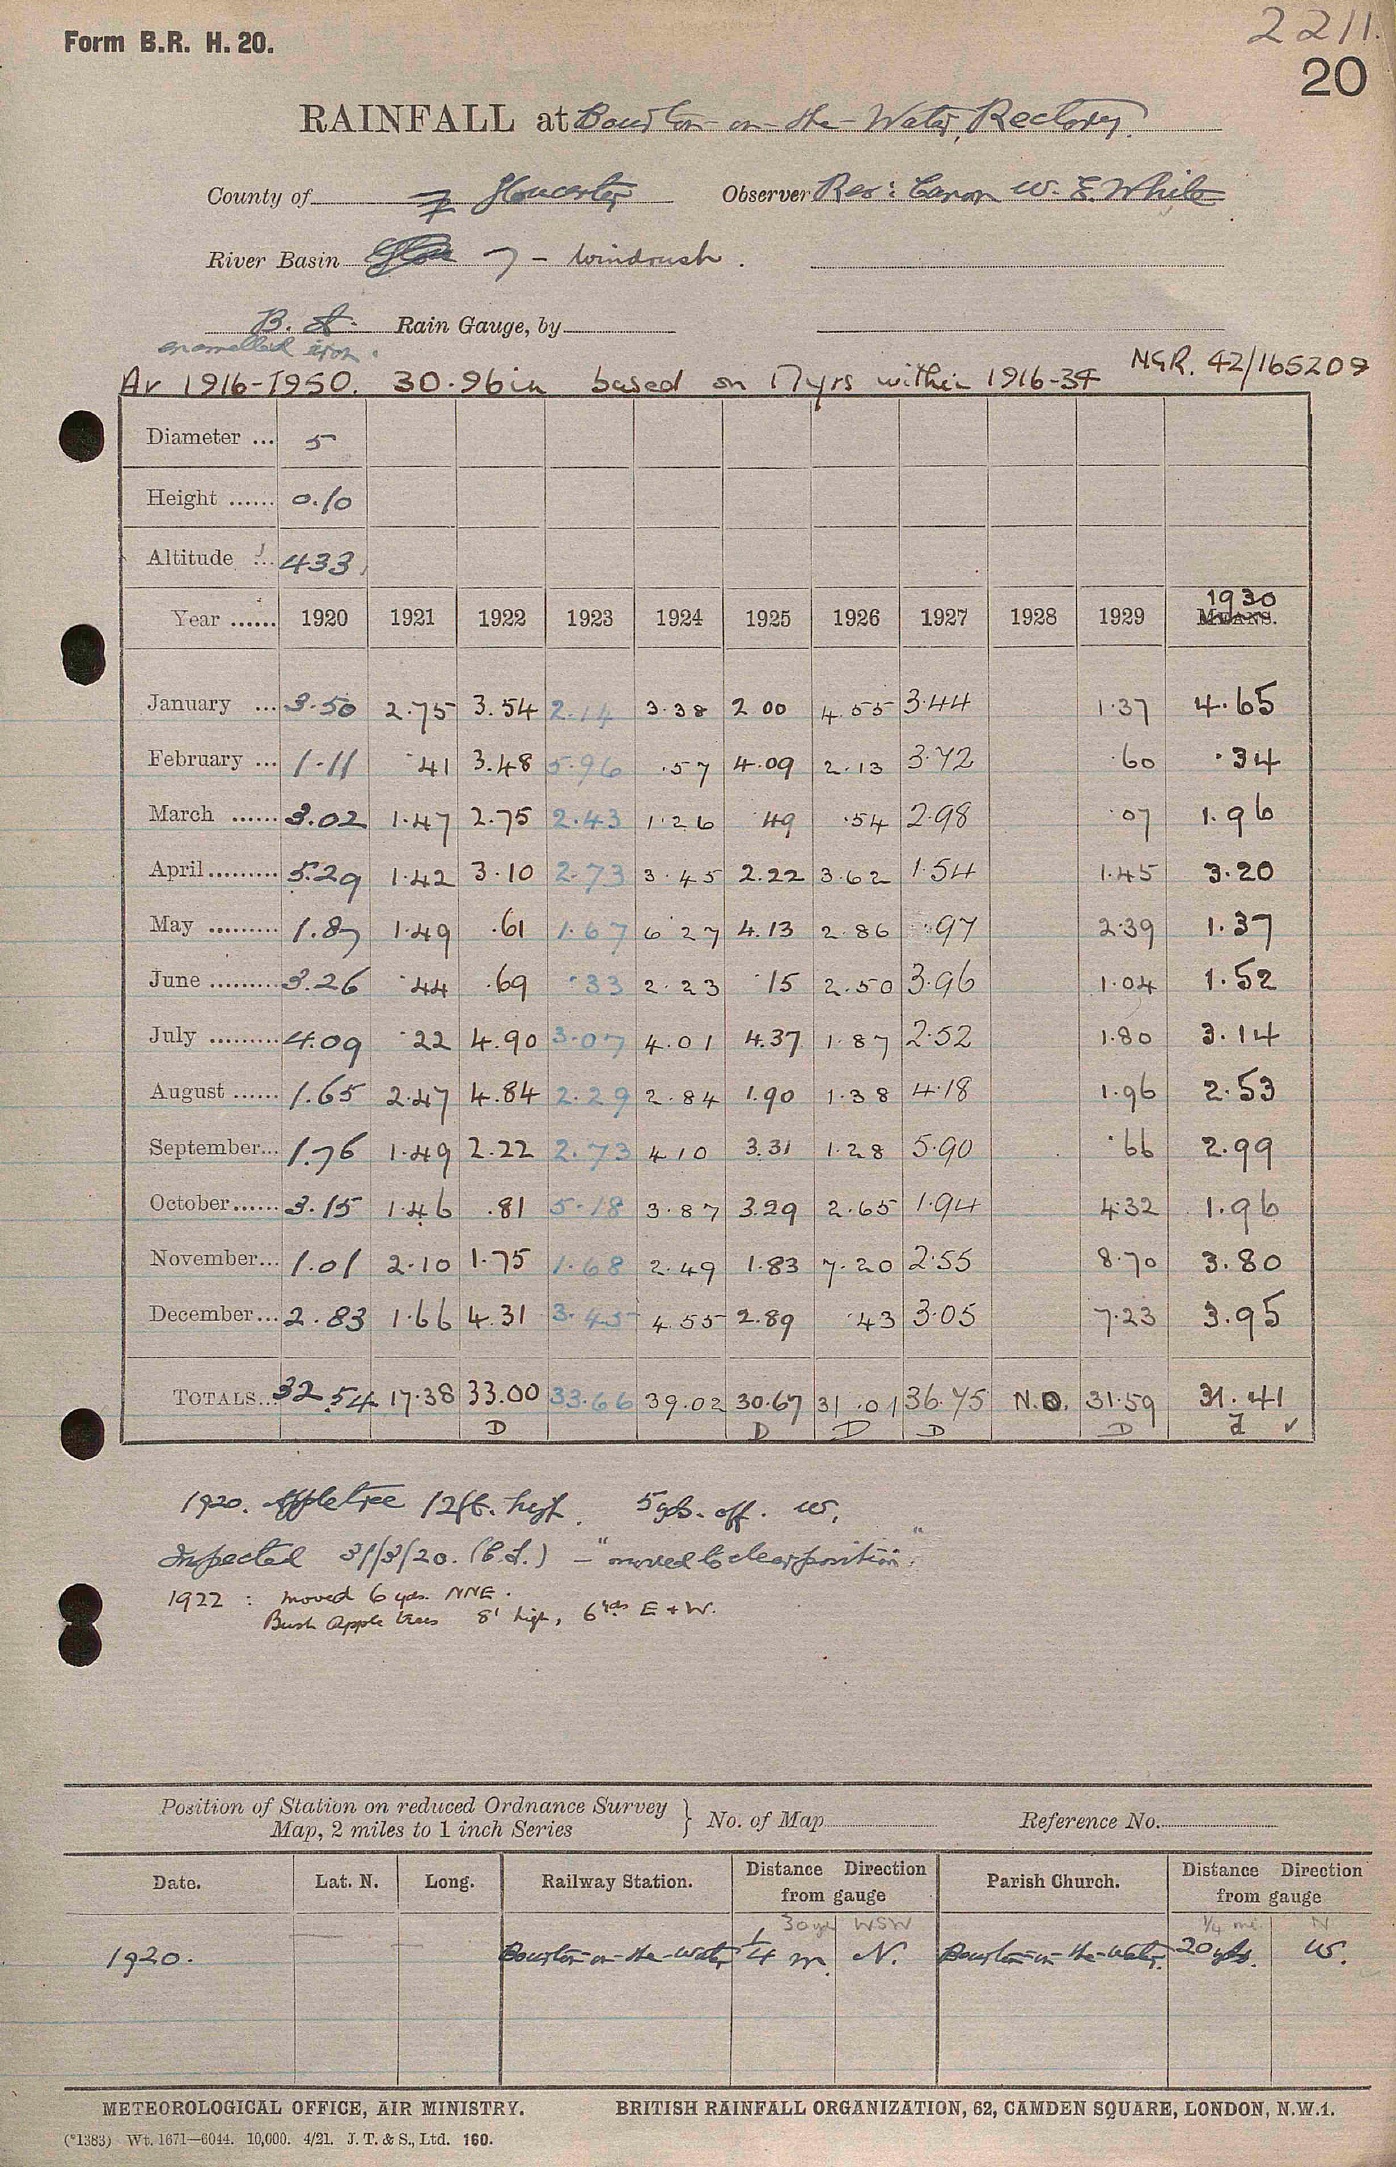 2211.
Form B.R. H. 20.
20
RAINFALL at Bourton-on-the-Water, Rectory.
County of Gloucester Observer Rev: Canon W. E. White
River Basin 7 - Windrush.
B. & Rain Gauge, by
enamelled iron.
Av 1916-1950. 30.96in based on 17yrs within 1916-34 NGR. 42/165209
Diameter ... 5
Height ...... 0.10
Altitude ... 433
1930
Year ...... 1920 1921 1922 1923 1924 1925 1926 1927 1928 1929 MEANS.
January ... 3.50 2.75 3.54 2.14 3.38 2 00 4.55 3.44 1.37 4.65
February ... 1.11 .41 3.48 5.96 .57 4.09 2.13 3.72 .60 .34
March ...... 3.02 1.47 2.75 2.43 1.26 .49 .54 2.98 .07 1.96
April......... 5.29 1.42 3.10 2.73 3.45 2.22 3.62 1.54 1.45 3.20
May ......... 1.87 1.49 .61 1.67 6.27 4.13 2.86 .97 2.39 1.37
June ......... 3.26 .44 .69 .33 2.23 .15 2.50 3.96 1.04 1.52
July ......... 4.09 .22 4.90 3.07 4.01 4.37 1.87 2.52 1.80 3.14
August ...... 1.65 2.47 4.84 2.29 2.84 1.90 1.38 4.18 1.96 2.53
September... 1.76 1.49 2.22 2.73 4.10 3.31 1.28 5.90 .66 2.99
October...... 3.15 1.46 .81 5.18 3.87 3.29 2.65 1.94 4.32 1.96
November... 1.01 2.10 1.75 1.68 2.49 1.83 7.20 2.55 8.70 3.80
December... 2.83 1.66 4.31 3.45 4.55 2.89 .43 3.05 7.23 3.95
TOTALS... 32.54 17.38 33.00 33.66 39.02 30.67 31.01 36.75 N.O. 31.59 31.41
D D D D D d ✓
1920. Appletree 12ft. high. 5yds. off. W.
Inspected 31/3/20. (C.S.) - "moved to clear position".
1922 : moved 6 yds. NNE.
Bush Apple trees 8' high, 6yds E + W.
Position of Station on reduced Ordnance Survey
Map, 2 miles to 1 inch Series } No. of Map Reference No.
Date. Lat. N. Long. Railway Station. Distance Direction from gauge Parish Church. Distance Direction from gauge
30 yd WSW 1/4 mi. N
1920. — — Bourton-on-the-Water 1/4 m. N. Bourton-on-the-Water. 20 yds. W.
METEOROLOGICAL OFFICE, AIR MINISTRY. BRITISH RAINFALL ORGANIZATION, 62, CAMDEN SQUARE, LONDON, N.W.1.
(*1383) Wt. 1671—6044. 10,000. 4/21. J. T. & S., Ltd. 160.